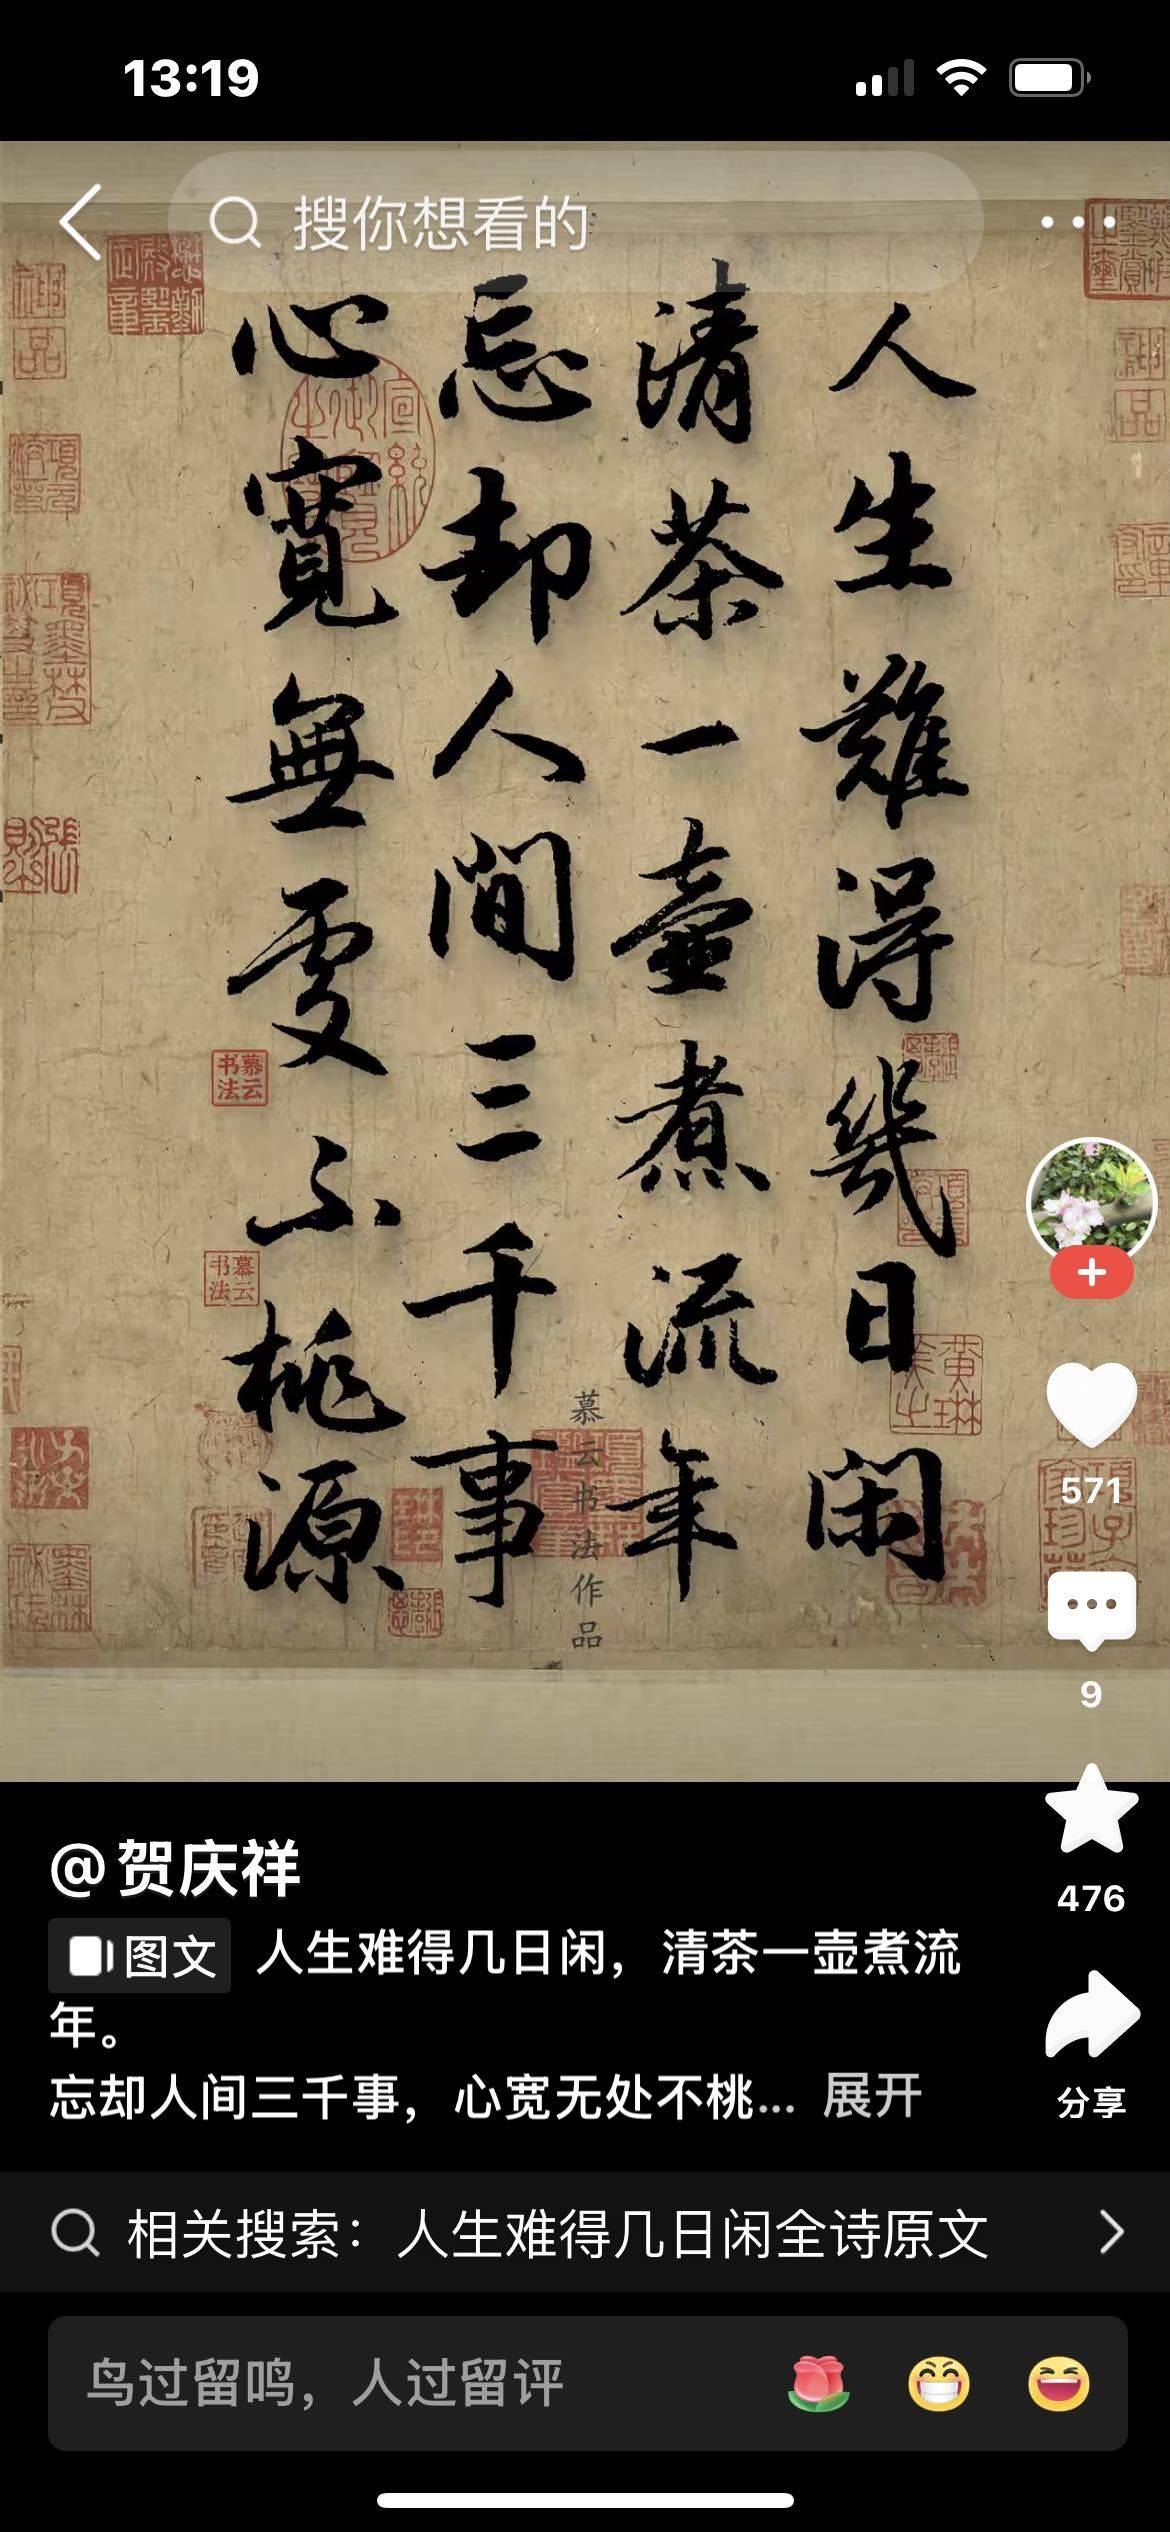 13:19
搜你想看的
人生難得幾日闲
清茶一壺煮流年
忘却人间三千事
心寬無處不桃源
慕云书法
慕云书法
慕云书法作品
571
9
476
分享
@贺庆祥
图文 人生难得几日闲，清茶一壶煮流
年。
忘却人间三千事，心宽无处不桃... 展开
相关搜索：人生难得几日闲全诗原文
鸟过留鸣，人过留评